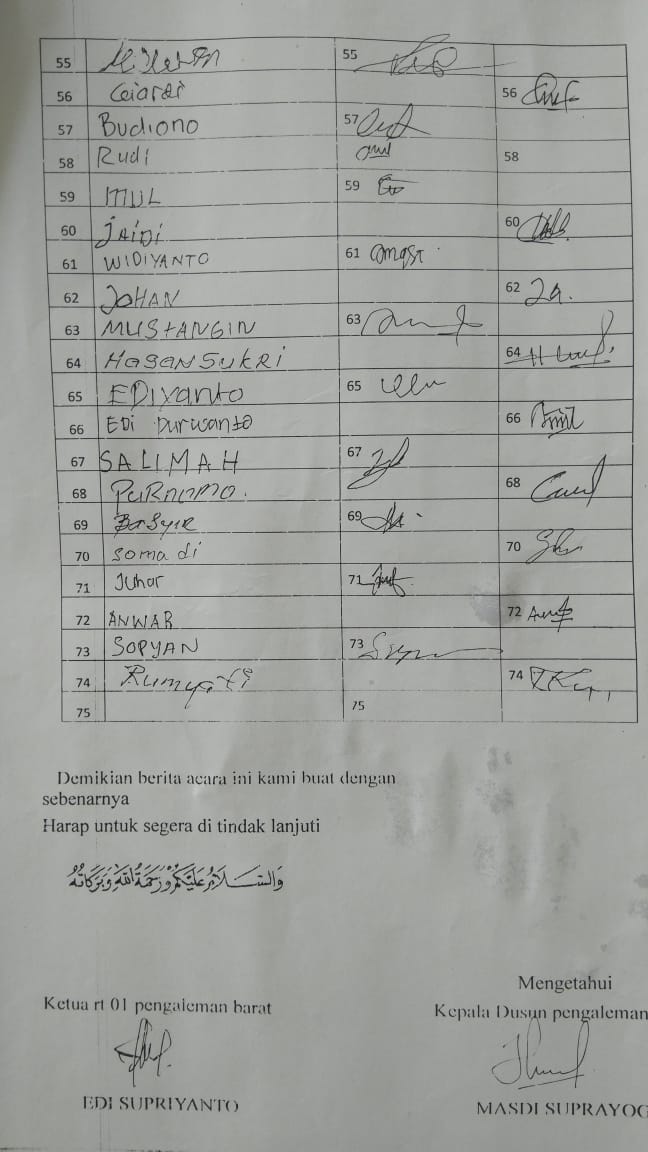 55 55
56 56
57 Budiono 57
58 Rudi 58
59 MUL 59
60 JAIDI 60
61 WIDIYANTO 61
62 JOHAN 62
63 MUSTANGIN 63
64 HASAN SUKRI 64
65 EDIyanto 65
66 EDi purwanto 66
67 SALIMAH 67
68 PURNOMO. 68
69 BaSyIR 69
70 Soma di 70
71 Juhar 71
72 ANWAR 72
73 SOPYAN 73
74 Rumyati 74
75 75
Demikian berita acara ini kami buat dengan
sebenarnya
Harap untuk segera di tindak lanjuti
وَالسَّلَامُ عَلَيْكُمْ وَرَحْمَةُ اللهِ وَبَرَكَاتُهُ
Mengetahui
Ketua rt 01 pengaleman barat Kepala Dusun pengaleman
EDI SUPRIYANTO MASDI SUPRAYOG